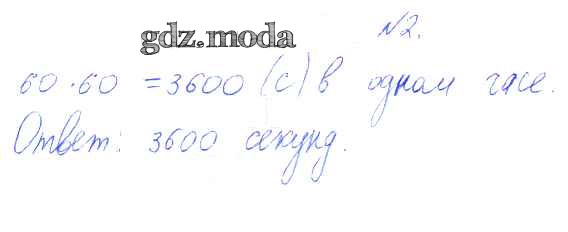 gdz.moda
№2.
60 · 60 = 3600 (с) в одном часе.
Ответ: 3600 секунд.